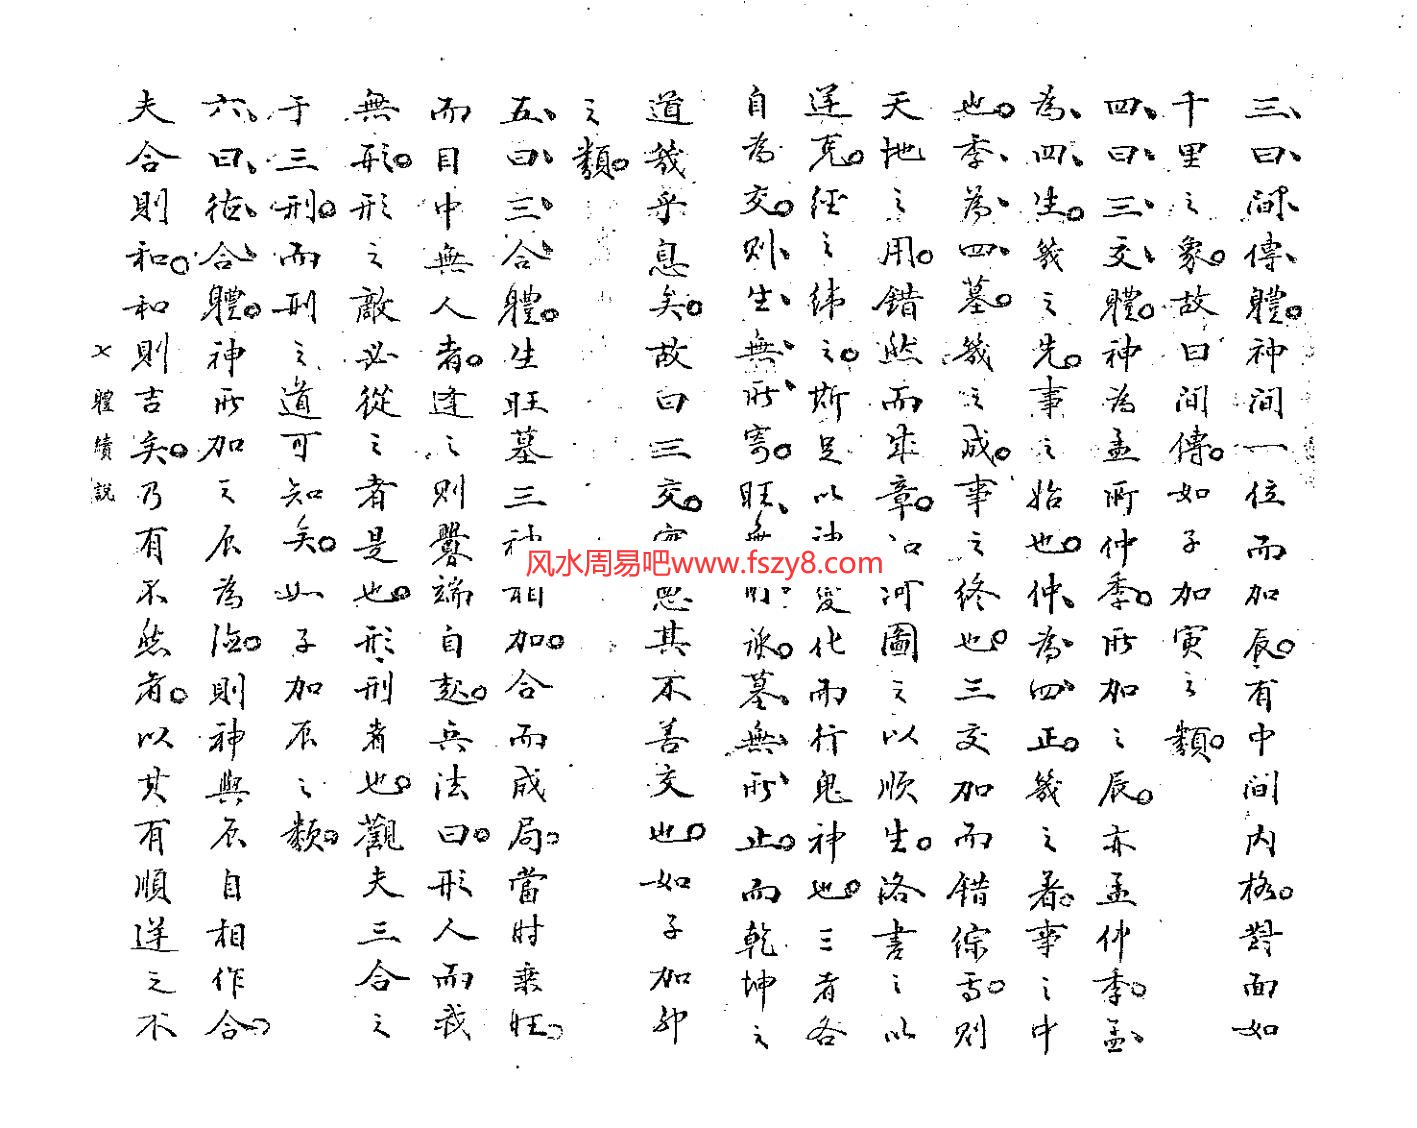 三、曰、間、傳、體。神間一位而加辰。有中間內格。對面如
千里之象。故曰間傳。如子加寅之類。
四、曰、三、交、體。神為孟所仲季。所加之辰。亦孟仲季。孟、
為、四、生。幾之先。事之始也。仲、為、四、正。幾之着。事之中
也。季、為、四、墓。幾之成。事之終也。三交加而錯綜焉。則
天地之用。錯然而成章。河圖之以順生。洛書之以
逆克。經之緯之。斯足以變化而行鬼神也。三者各
自為交。則、生、無、所、寄。旺、無所、承。墓、無、所、止。而乾坤之
道幾乎息矣。故曰三交。其不善交也。如子加卯
之類。
五、曰、三、合、體。生旺墓三神相加。合而成局。當时乘旺。
而目中無人者。逢之則釁端自起。兵法曰。形人而我
無形。形之敵必從之者是也。形、刑者也。觀夫三合之
于三刑。而刑之道可知矣。如子加辰之類。
六、曰、德、合、體。神所加之辰為德。則神與辰自相作合。
夫合則和。和則吉矣。乃有不然者。以其有順逆之不
體續說
风水周易吧www.fszy8.com